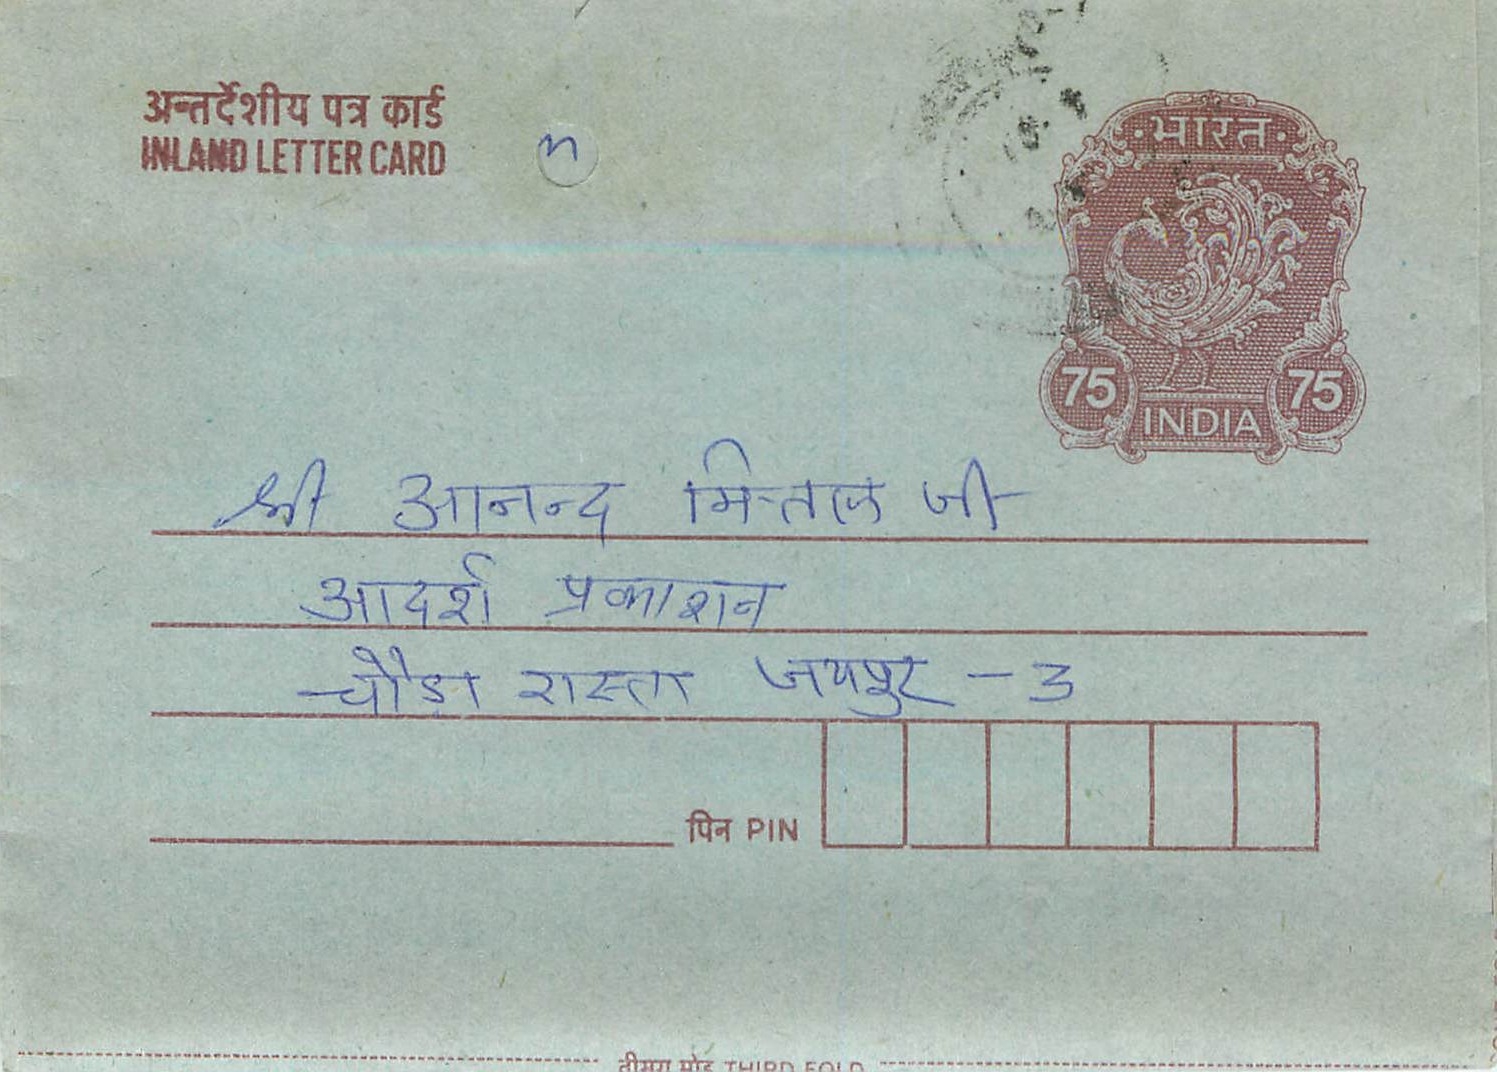 अन्तर्देशीय पत्र कार्ड
INLAND LETTER CARD
n
भारत
75 75
INDIA
श्री आनन्द मित्तल जी
आदर्श प्रकाशन
चौड़ा रास्ता जयपुर - 3
पिन PIN
तीसरा मोड़ THIRD FOLD